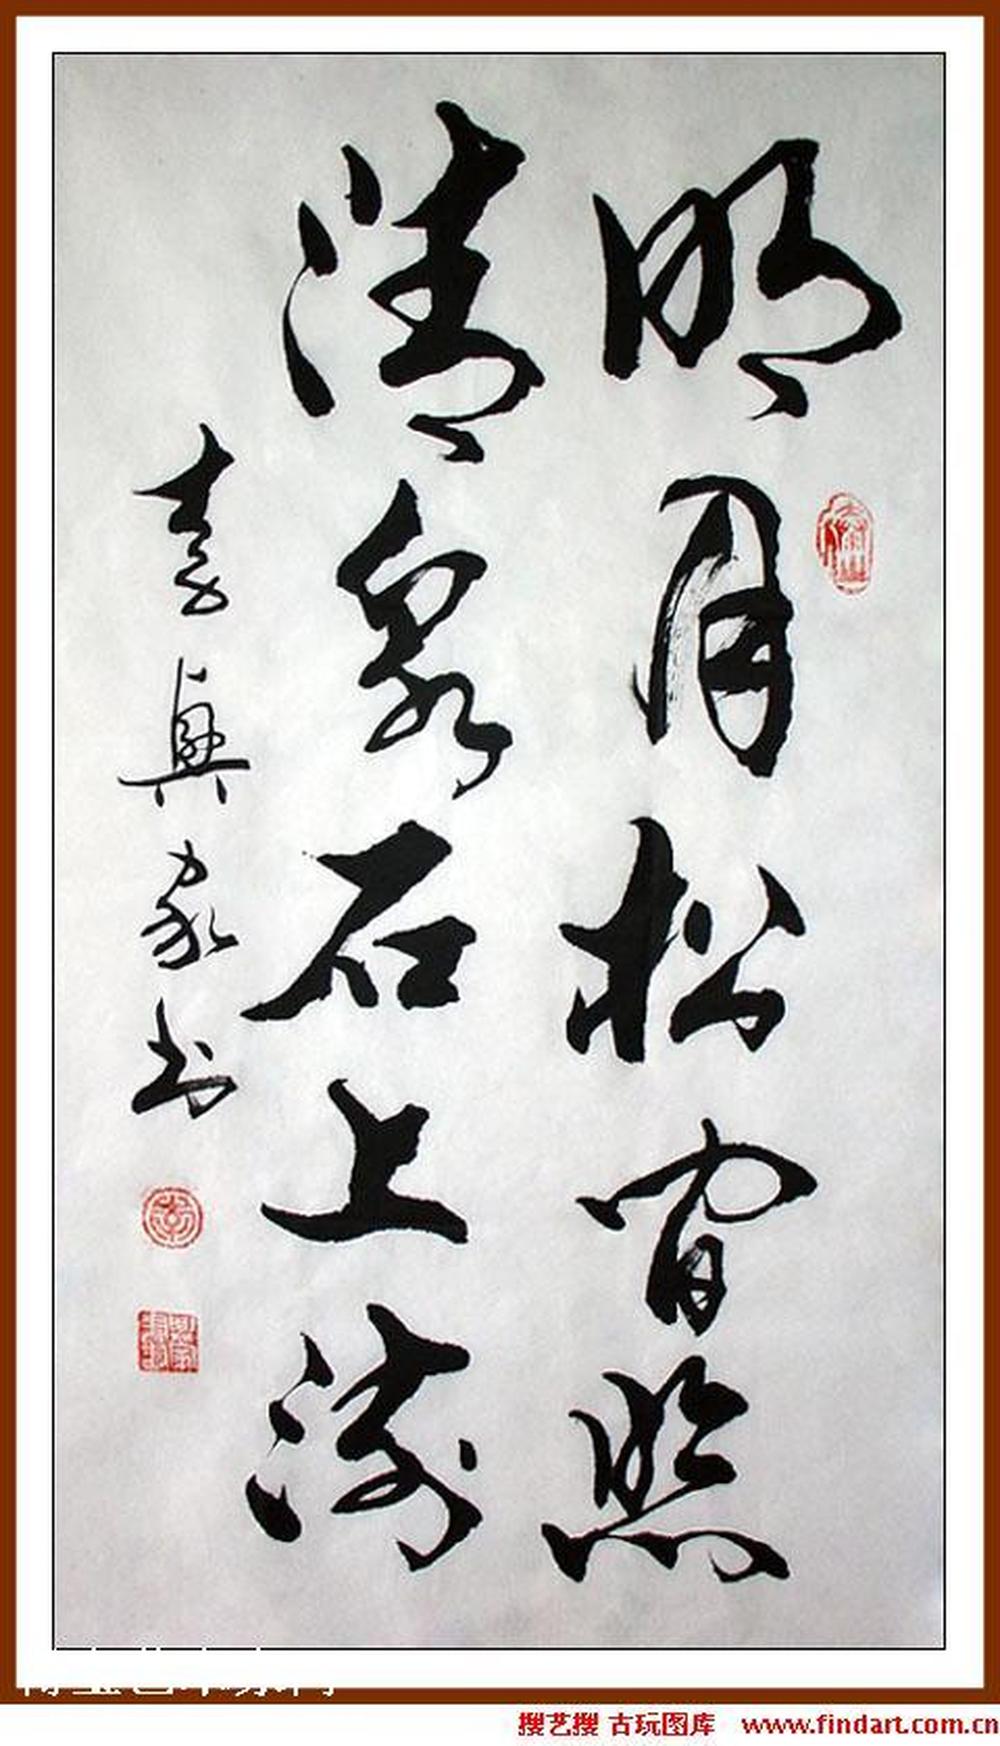 明月松间照
清泉石上流
搜艺搜 古玩图库 www.findart.com.cn